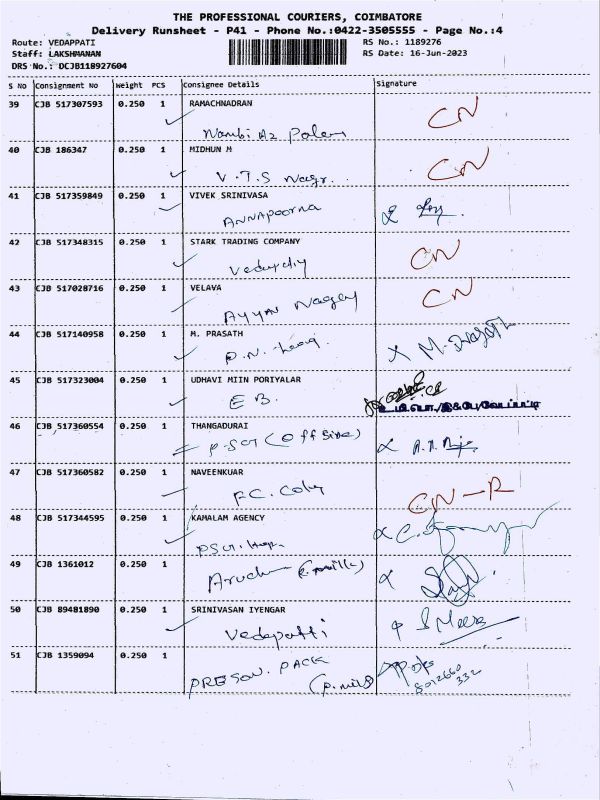 THE PROFESSIONAL COURIERS, COIMBATORE
Delivery Runsheet - P41 - Phone No.:0422-3505555 - Page No.:4
Route: VEDAPPATI RS No.: 1189276
Staff: LAKSHMANAN RS Date: 16-Jun-2023
DRS No.: DCJB118927604
S No Consignment No Weight PCS Consignee Details Signature
39 CJB 517307593 0.250 1 RAMACHNADRAN
CN
40 CJB 186347 0.250 1 MIDHUN M
V.T.S Nagr. CN
41 CJB 517359849 0.250 1 VIVEK SRINIVASA
ANNAPoorna
42 CJB 517348315 0.250 1 STARK TRADING COMPANY
CN
43 CJB 517028716 0.250 1 VELAVA
AYYAN CN
44 CJB 517140958 0.250 1 M. PRASATH
P.N. X M.
45 CJB 517323004 0.250 1 UDHAVI MIIN PORIYALAR
E B.
46 CJB 517360554 0.250 1 THANGADURAI
(OFF Sire)
47 CJB 517360582 0.250 1 NAVEENKUAR
F.C. Coly CN-R
48 CJB 517344595 0.250 1 KAMALAM AGENCY
49 CJB 1361012 0.250 1
50 CJB 89481890 0.250 1 SRINIVASAN IYENGAR
Vedapatti S Meera
51 CJB 1359094 0.250 1
PRESON. PACK
8012660
332